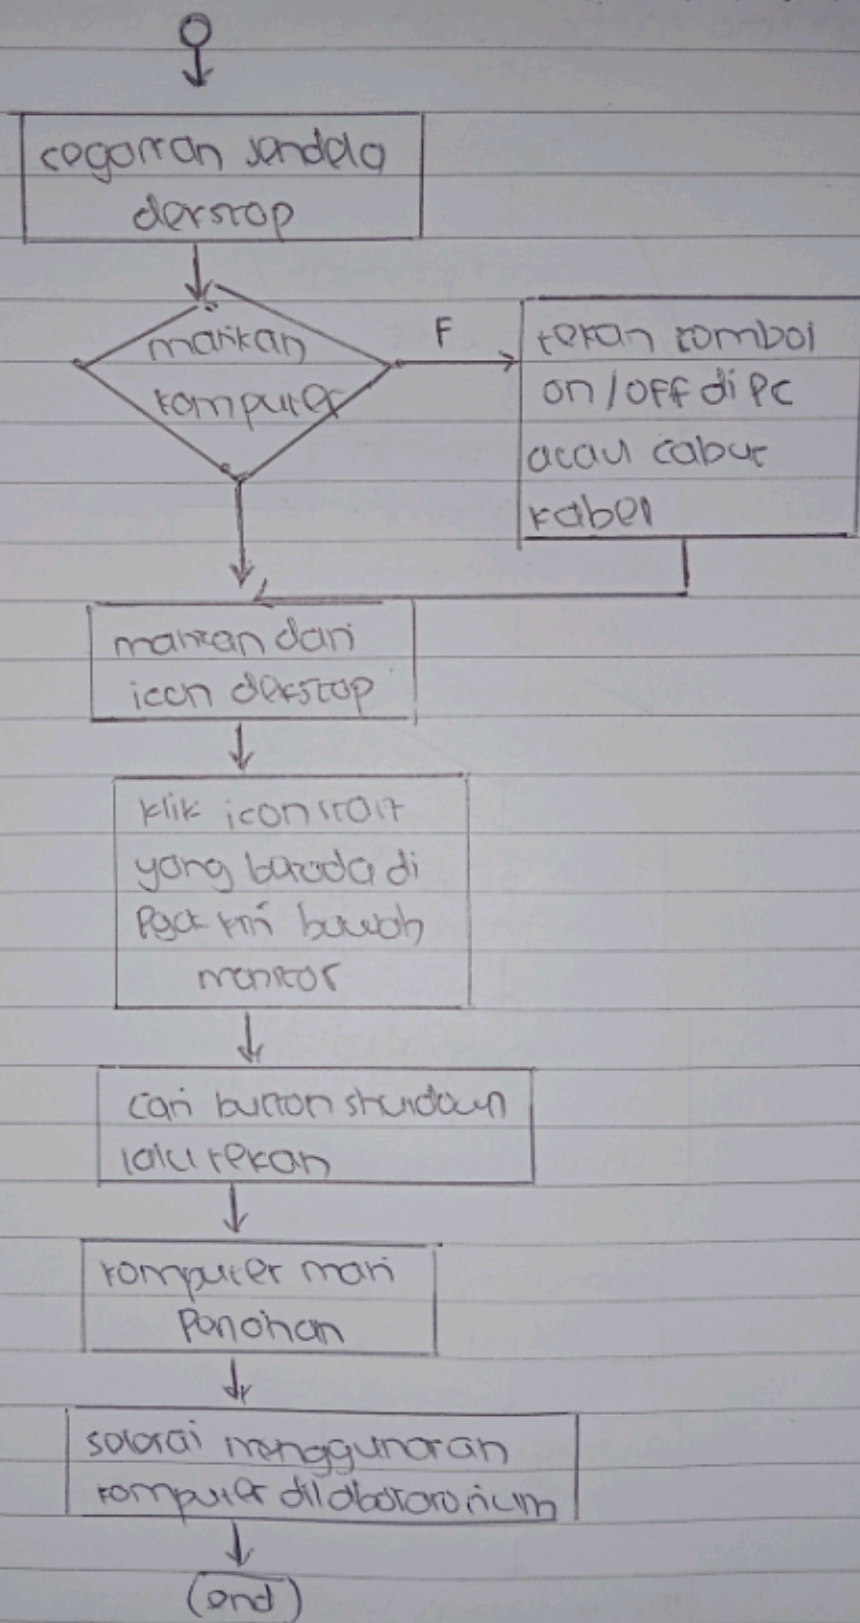 cegatkan jendela
desktop
matikan
komputer
F
tekan tombol
on/off di PC
atau cabut
kabel
matikan dari
icon desktop
klik icon start
yang barada di
pojok kiri bawah
monitor
cari button shutdown
lalu tekan
komputer mati
Panahan
selesai menggunakan
komputer dilaboratorium
end